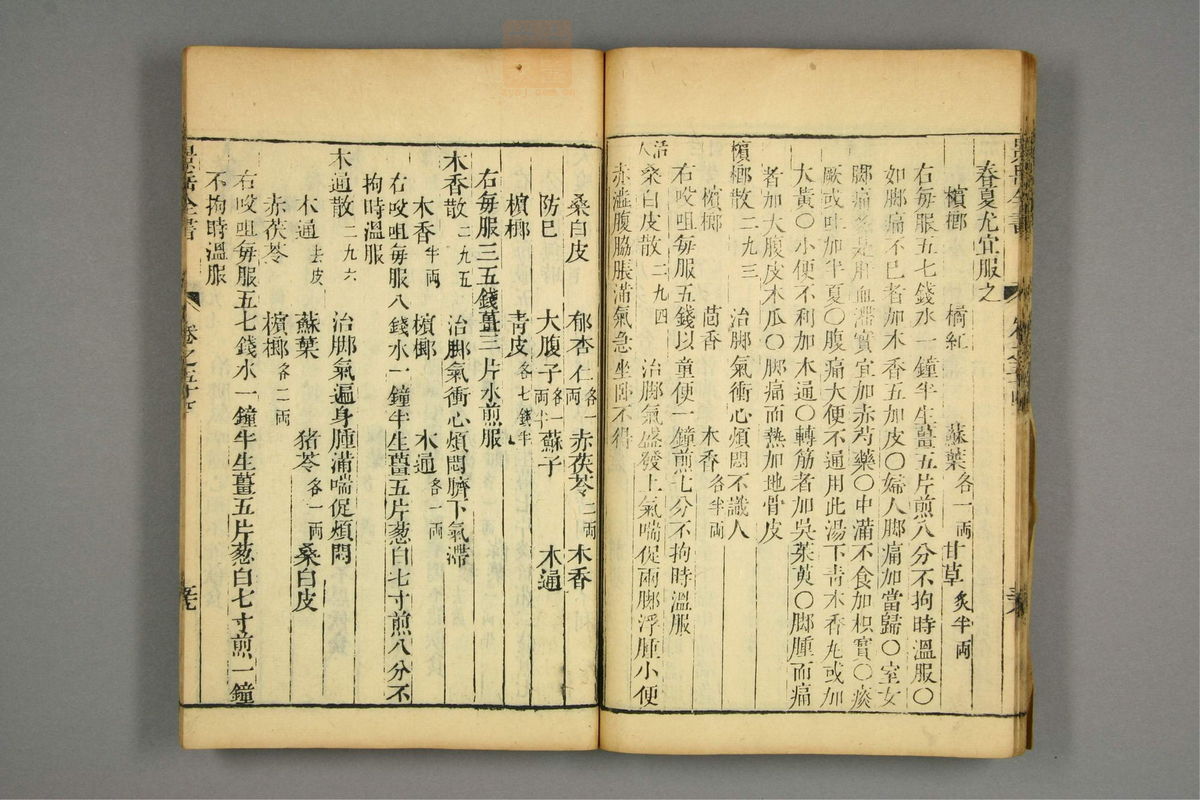 春夏尤宜服之
檳榔 橘紅 蘇葉各一両 甘草炙半両
右每服五七錢水一鐘半生薑五片煎八分不拘時溫服〇
如脚痛不已者加木香五加皮〇婦人脚痛加當歸〇室女
脚痛多是肝血滯實宜加赤芍藥〇中滿不食加枳實〇痰
厥或吐加半夏〇腹痛大便不通用此湯下青木香丸或加
大黃〇小便不利加木通〇轉筋者加吳茱萸〇脚腫而痛
者加大腹皮木瓜〇脚痛而熱加地骨皮
檳榔散二九三 治脚氣衝心煩悶不識人
檳榔 茴香 木香各半両
右㕮咀每服五錢以童便一鐘煎七分不拘時溫服
活人桑白皮散二九四 治脚氣盛發上氣喘促兩脚浮腫小便
赤澁腹脇脹滿氣急坐卧不得
桑白皮 郁杏仁各一両 赤茯苓二両 木香
防巳 大腹子各一両半 蘇子 木通
檳榔 青皮各七錢半
右每服三五錢薑三片水煎服
木香散二九五 治脚氣衝心煩悶臍下氣滯
木香半両 檳榔 木通各一両
右㕮咀每服八錢水一鐘半生薑五片葱白七寸煎八分不
拘時溫服
木通散二九六 治脚氣遍身腫滿喘促煩悶
木通去皮 蘇葉 猪苓各一両 桑白皮
赤茯苓 檳榔各二両
右㕮咀每服五七錢水一鐘半生薑五片葱白七寸煎一鐘
不拘時溫服
景岳全書 卷之五十